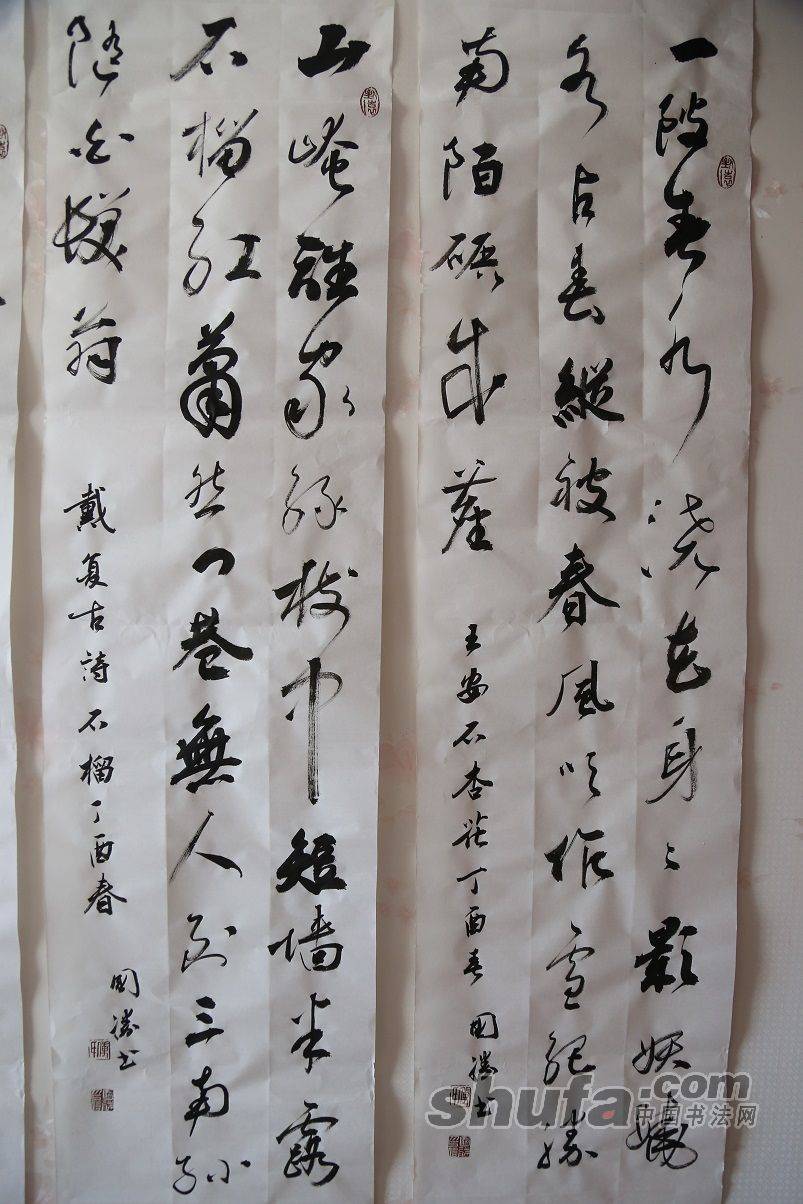 一陂春水浇花身々影妖娆
各占春縱被春風吹作雪絕勝
南陌碾成塵
王安石杏花丁酉春
國勝书
山崦誰家綠樹中短墙半露
石榴紅蕭然门巷無人到三两孙
隨白髮翁
戴复古詩石榴丁酉春
國勝书
shufa.com
中国书法网